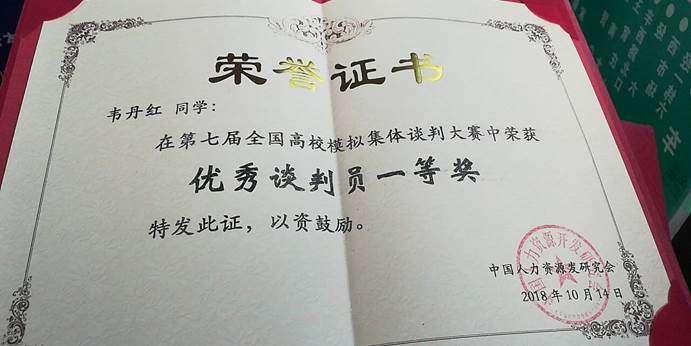 荣誉证书
韦丹红 同学：
在第七届全国高校模拟集体谈判大赛中荣获
优秀谈判员一等奖
特发此证，以资鼓励。
中国人力资源发研究会
2018年10月14日